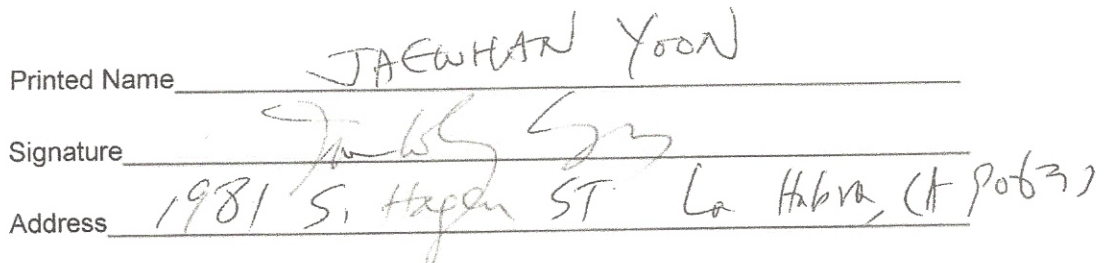 Printed Name JAEWHAN YOON
Signature
Address 1981 S. Hagen ST. La Habra, CA 90631